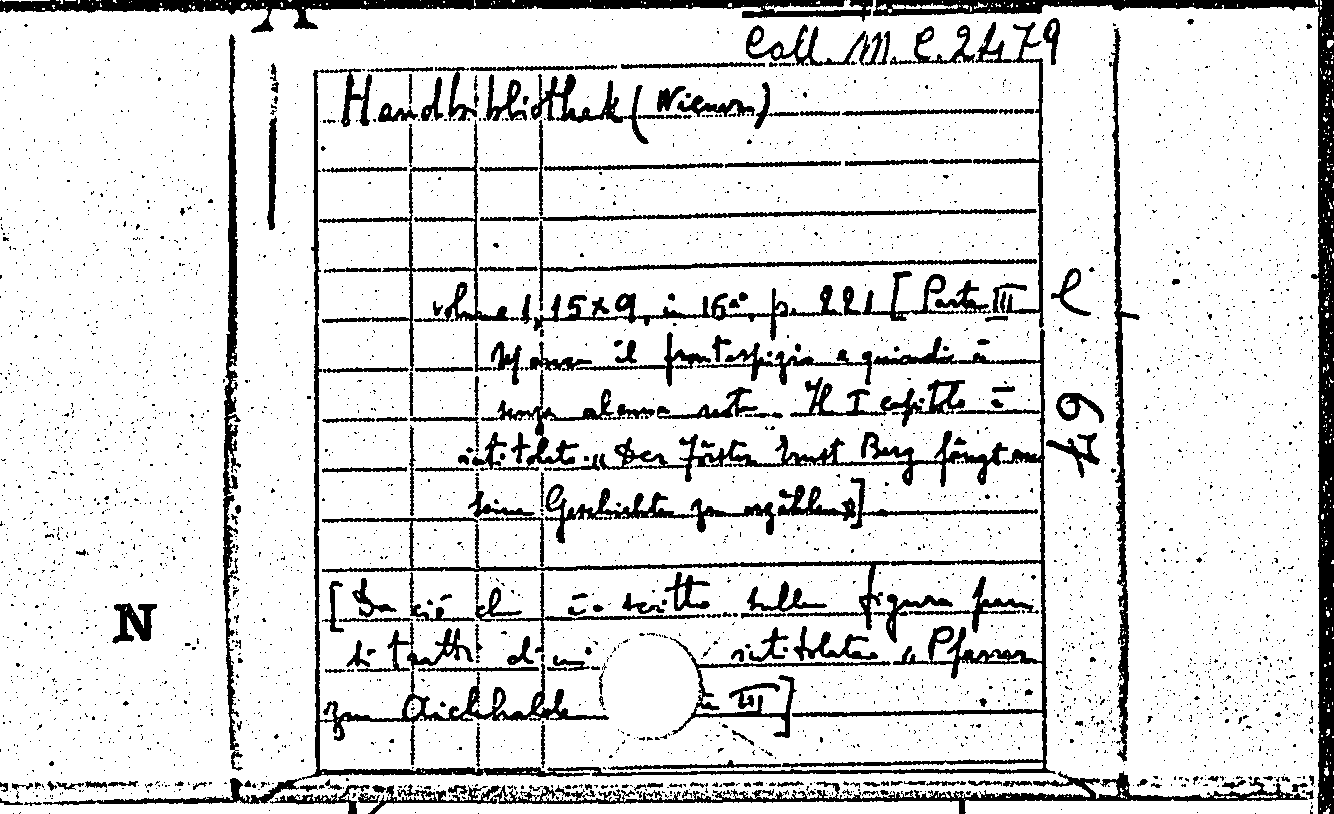 Coll. M. C. 2479
Handbibliothek (Wiemon)
volume 1, 15x9, in 16mo, p. 221 [Parte III
Manca il frontespizio e quindi è
senza alcuna nota. Il I capitolo è
intitolato: „Der Förster Ernst Berg fängt an
seine Geschichten zu erzählen"].
[Da ciò che è scritto sulla figura pare
si tratti di un intitolato „Pfarrer
zu Aichhalde III]
l
49
N